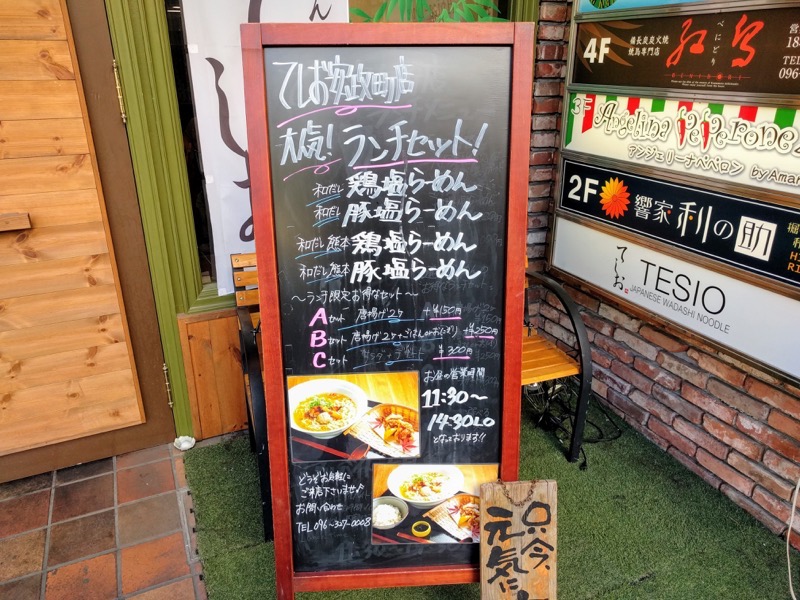 てしお安政町店
大人気！ランチセット！
和だし 鶏塩らーめん
和だし 豚塩らーめん
和だし熊本 鶏塩らーめん
和だし熊本 豚塩らーめん
～ランチ限定お得なセット～
Aセット 唐揚げ2ケ +¥150円
Bセット 唐揚げ2ケ+ごはんorおにぎり +¥250円
Cセット ¥300円
お昼の営業時間
11:30～
14:30LO
となっております!!
どうぞお気軽に
ご来店下さいませ♪
お問い合わせ
TEL 096-327-0008
只今、
元気に
4F
備長炭炭火焼
焼鳥専門店
べにどり
紅鳥
BENIDORI
TEL
096
3F
Angelina Peperone
アンジェリーナペペロン by Amar
2F
響家 利の助
てしお
TESIO
JAPANESE WADASHI NOODLE